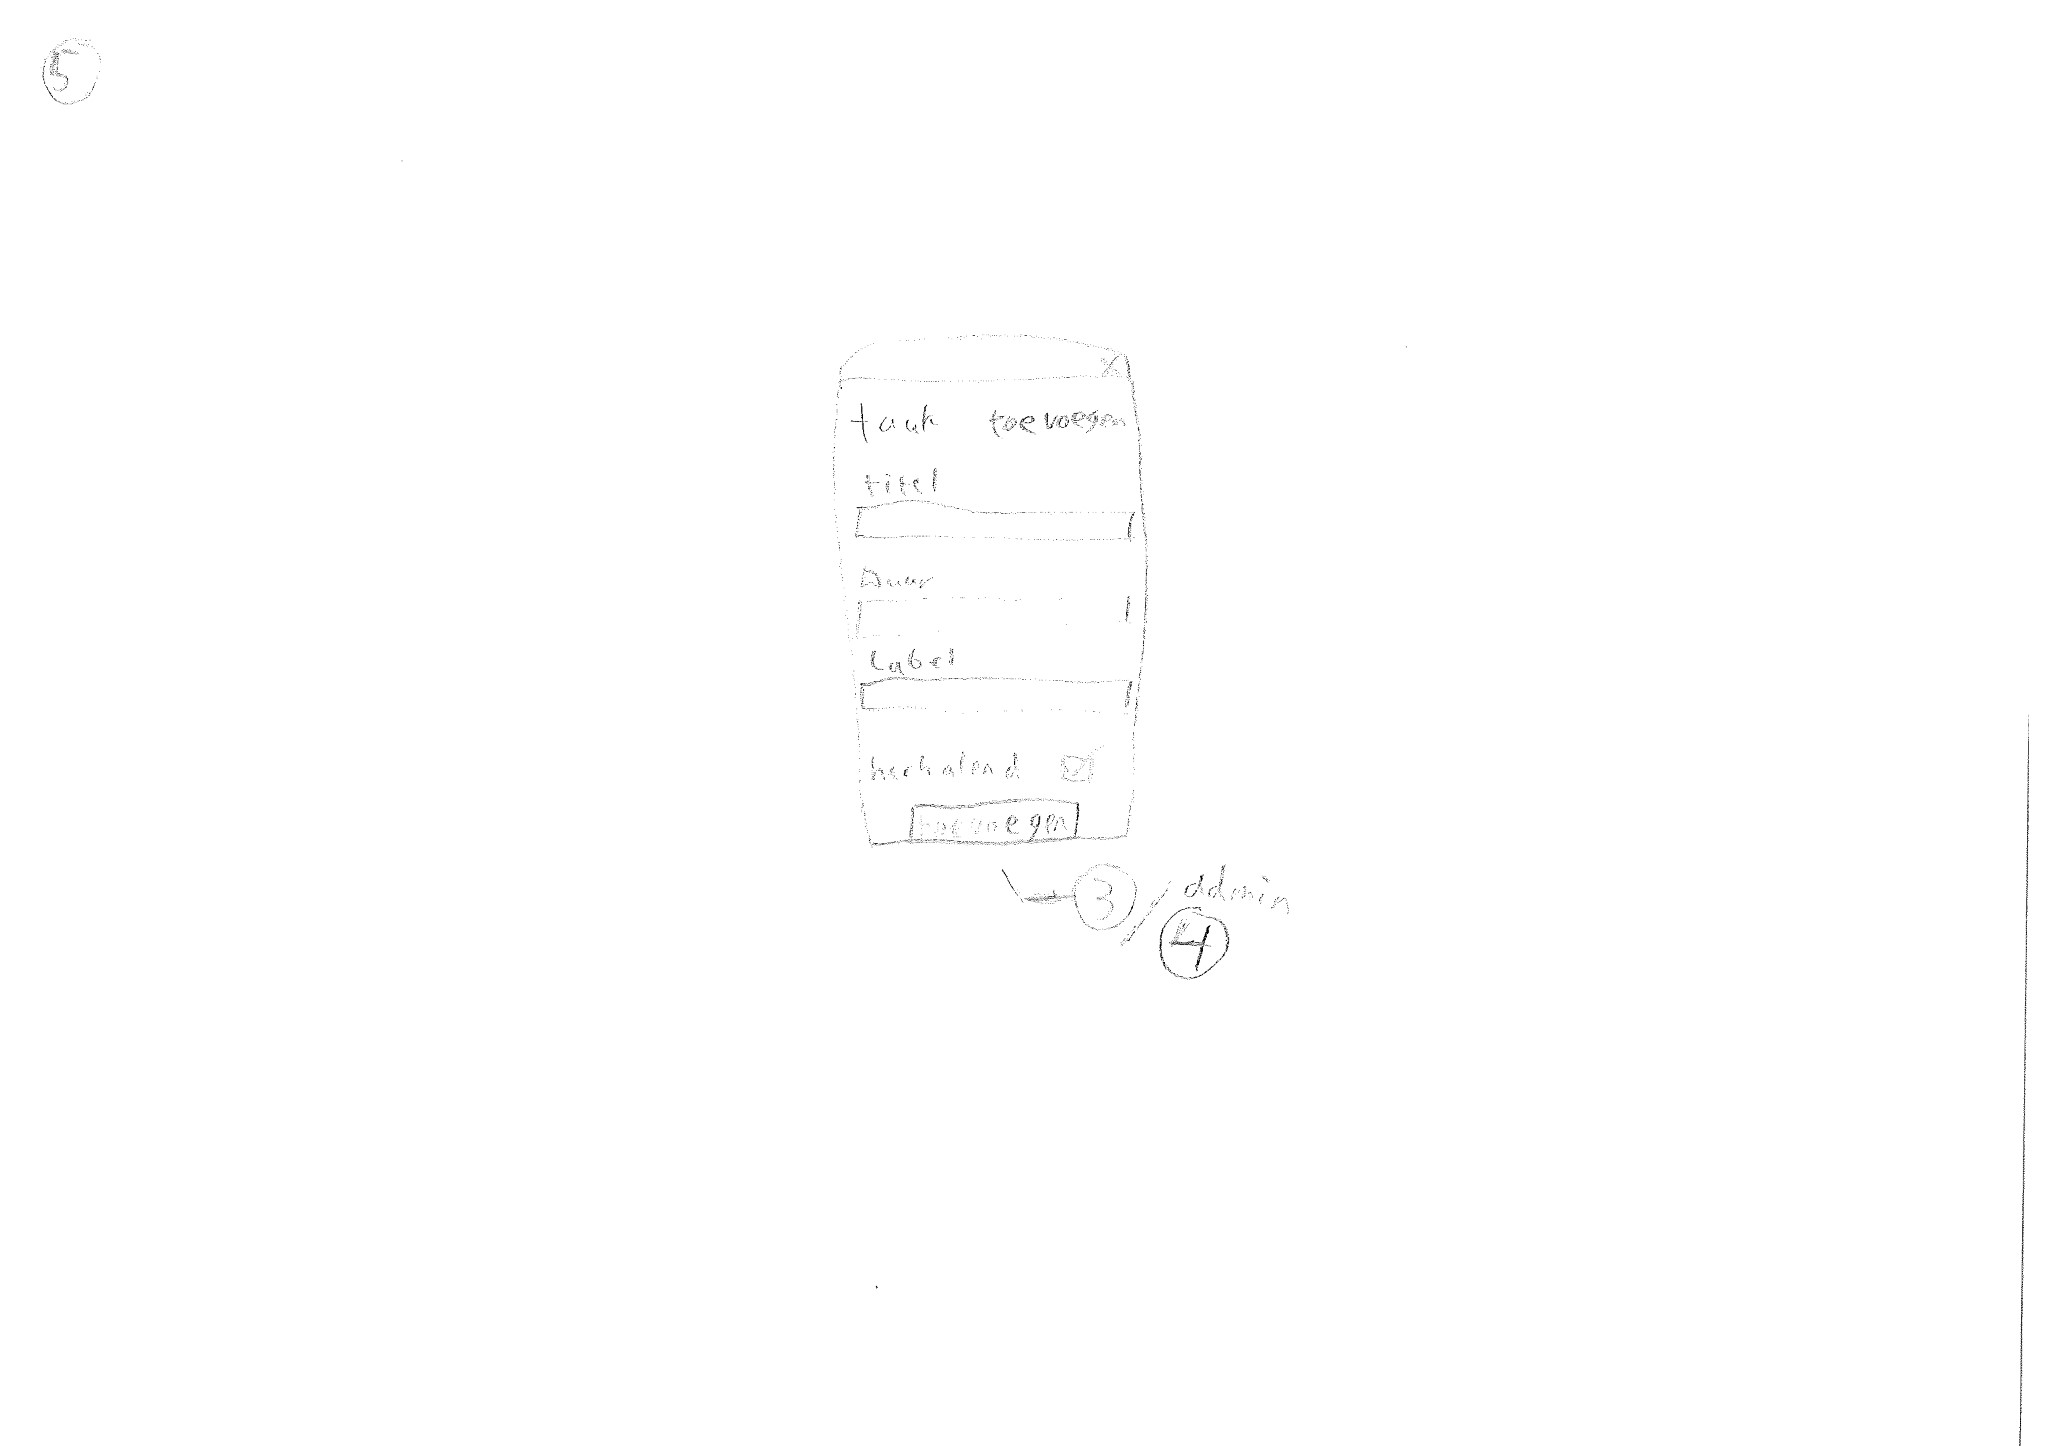 5
X
taak toevoegen
titel
Duur
Label
herhalend
toevoegen
3 / admin
4